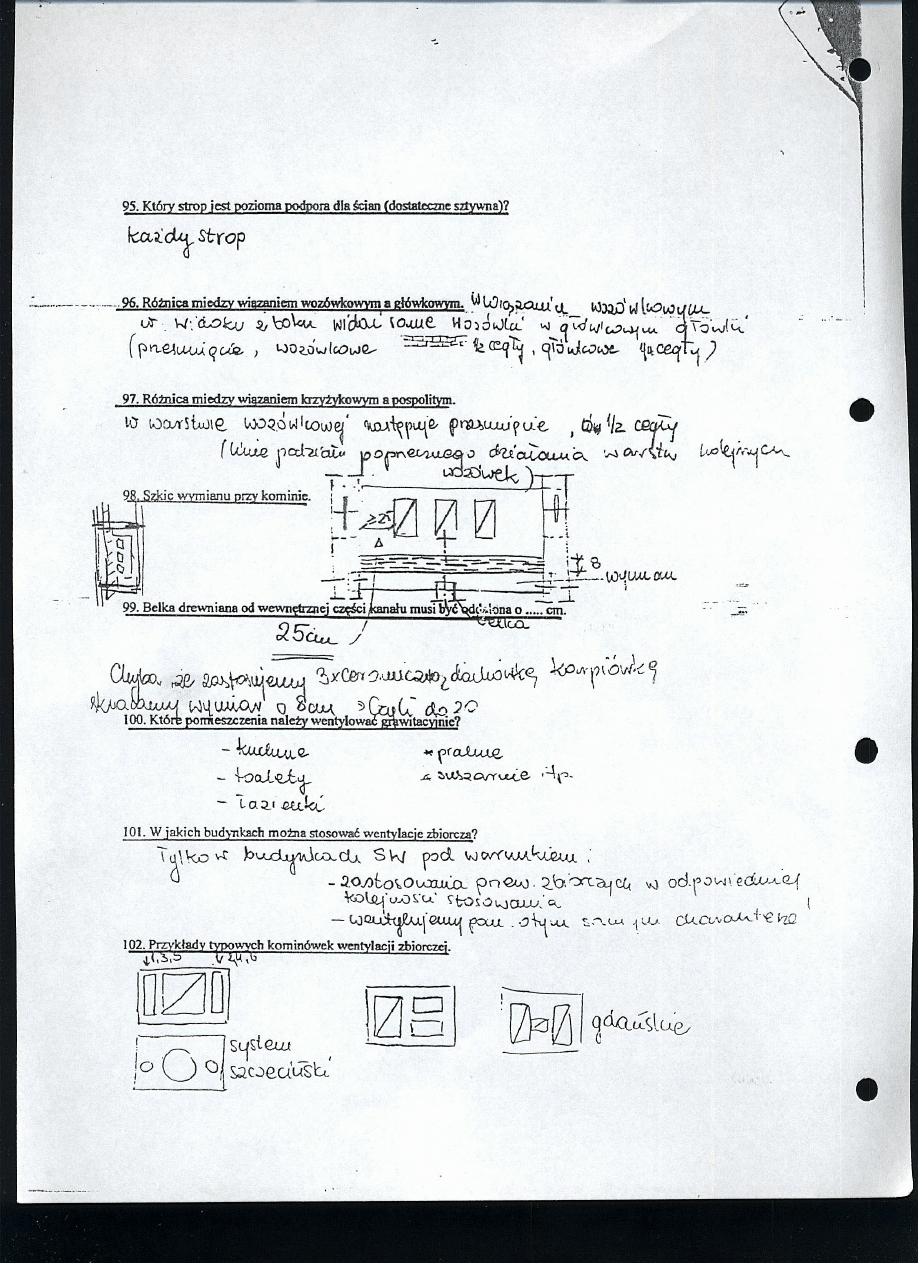 95. Który strop jest pozioma podpora dla ścian (dostateczne sztywna)?
każdy strop
96. Różnica miedzy wiązaniem wozówkowym a główkowym. W wiązaniu wozówkowym
w widoku z boku widać same wozówki w główkowym główki
(przesunięcie, wozówkowe 1/2 cegły, główkowe 1/4 cegły)
97. Różnica miedzy wiązaniem krzyżykowym a pospolitym.
w warstwie wozówkowej następuje przesunięcie, 1/2 cegły
(linie podziału poprzecznego działania warstw kolejnych
wozówek)
98. Szkic wymianu przy kominie.
≥25
8
wymian
99. Belka drewniana od wewnętrznej części kanału musi być oddalona o ..... cm.
belka
25cm
Chyba że zastosujemy 3x ceramiczną dachówkę karpiówkę
skracamy wymiar o 8cm czyli do 20
100. Które pomieszczenia należy wentylować grawitacyjnie?
- kuchnie
- pralnie
- toalety
- suszarnie itp.
- łazienki
101. W jakich budynkach można stosować wentylacje zbiorcza?
Tylko w budynkach SW pod warunkiem:
- zastosowania przew. zbiorczych w odpowiedniej
kolejności stosowania
- wentylujemy pom. o tym samym charakterze!
102. Przykłady typowych kominówek wentylacji zbiorczej.
1,3,5 2,4,6
gdańskie
system
szczeciński